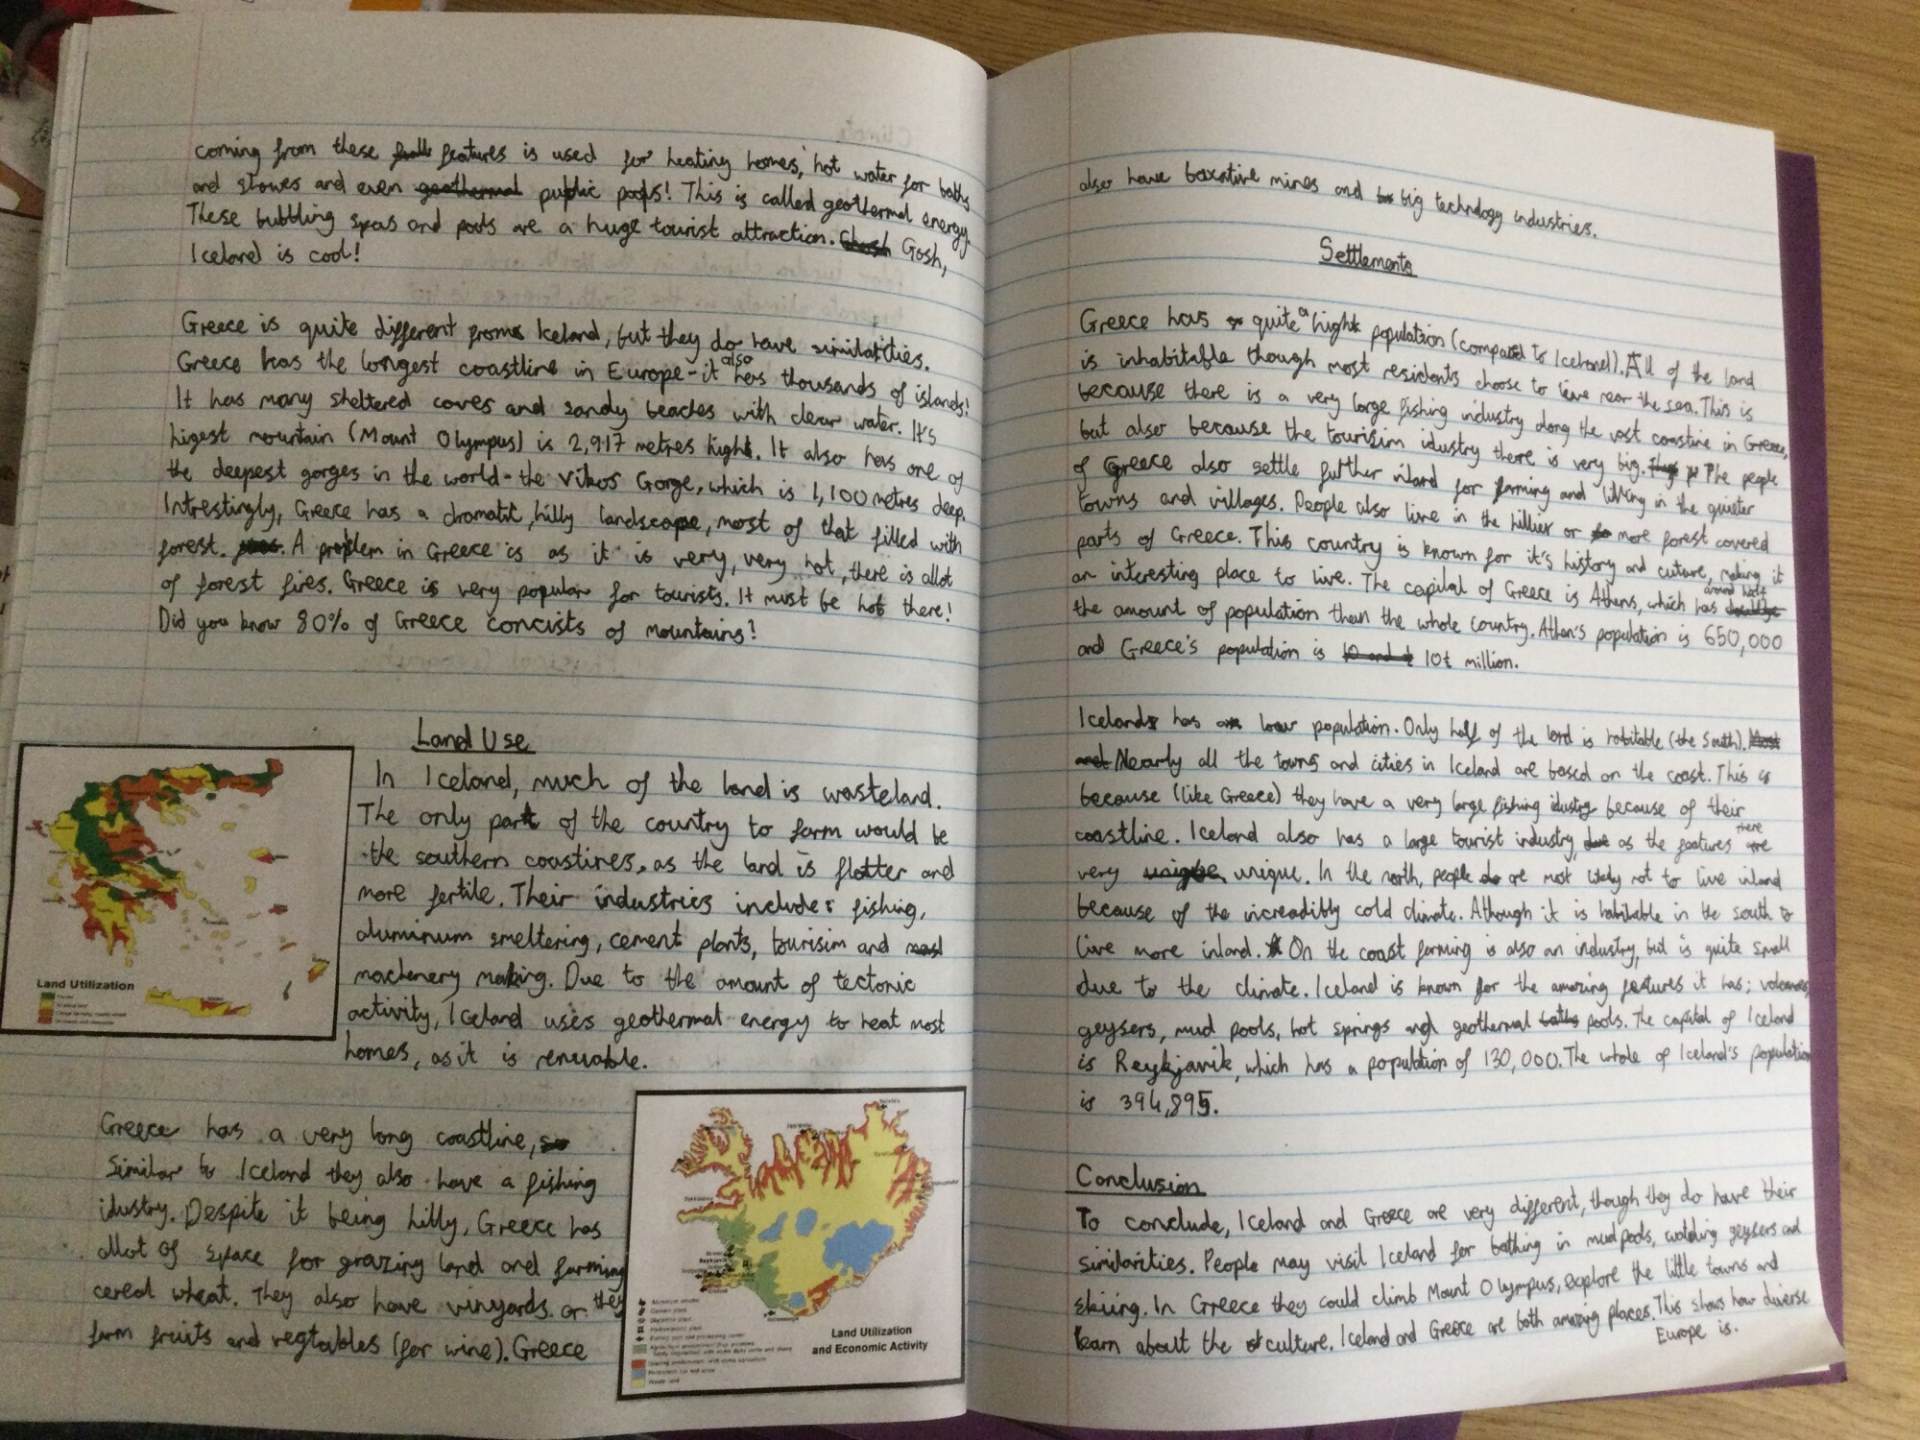 coming from these features is used for heating homes, hot water for baths
and stowes and even geothermal public pools! This is called geothermal energy.
These bubbling spas and pools are a huge tourist attraction. Gosh,
Iceland is cool!
Greece is quite different from Iceland, but they do have similarities.
Greece has the longest coastline in Europe - it also has thousands of islands!
It has many sheltered coves and sandy beaches with clear water. It's
higest mountain (Mount Olympus) is 2,917 metres hight. It also has one of
the deepest gorges in the world - the Vikos Gorge, which is 1,100 metres deep.
Intrestingly, Greece has a dramatic, hilly landscape, most of that filled with
forest. A problem in Greece is as it is very, very hot, there is allot
of forest fires. Greece is very popular for tourists. It must be hot there!
Did you know 80% of Greece concists of mountains?
Land Use
In Iceland, much of the land is wasteland.
The only part of the country to farm would be
the southern coastines, as the land is flatter and
more fertile. Their industries include: fishing,
aluminum smeltering, cement plants, tourisim and
machenery making. Due to the amount of tectonic
activity, Iceland uses geothermal energy to heat most
homes, as it is renuable.
Land Utilization
Greece has a very long coastline, so
Similar to Iceland they also have a fishing
idustry. Despite it being hilly, Greece has
allot of space for grazing land and farming
cereal wheat. They also have vinyards. or they
farm fruits and vegtables (for wine). Greece
Land Utilization
and Economic Activity
also have boxative mines and big technology industries.
Settlements
Greece has quite a hight population (compared to Iceland). All of the land
is inhabitable though most residents choose to live near the sea. This is
because there is a very large fishing industry along the vast coastine in Greece,
but also because the tourisim idustry there is very big. The people
of Greece also settle further inland for farming and living in the quieter
towns and villages. People also live in the hillier or more forest covered
parts of Greece. This country is known for it's history and culture, making it
an interesting place to live. The capital of Greece is Athens, which has around half
the amount of population than the whole country. Athen's population is 650,000
and Greece's population is 10 and 10t million.
Iceland has low population. Only half of the land is habitable (the South).
Nearly all the towns and cities in Iceland are based on the coast. This is
because (like Greece) they have a very large fishing idustry because of their
coastline. Iceland also has a large tourist industry, as the features there are
very unique. In the north, people are most likely not to live inland
because of the increadibly cold climate. Although it is habitable in the south to
live more inland. On the coast farming is also an industry, but is quite small
due to the climate. Iceland is known for the amazing features it has; volcanoes,
geysers, mud pools, hot springs and geothermal baths pools. The capital of Iceland
is Reykjavik, which has a population of 130,000. The whole of Iceland's population
is 394,895.
Conclusion
To conclude, Iceland and Greece are very different, though they do have their
similarities. People may visit Iceland for bathing in mudpools, watching geysers and
skiing. In Greece they could climb Mount Olympus, explore the little towns and
learn about the culture. Iceland and Greece are both amazing places. This shows how diverse
Europe is.